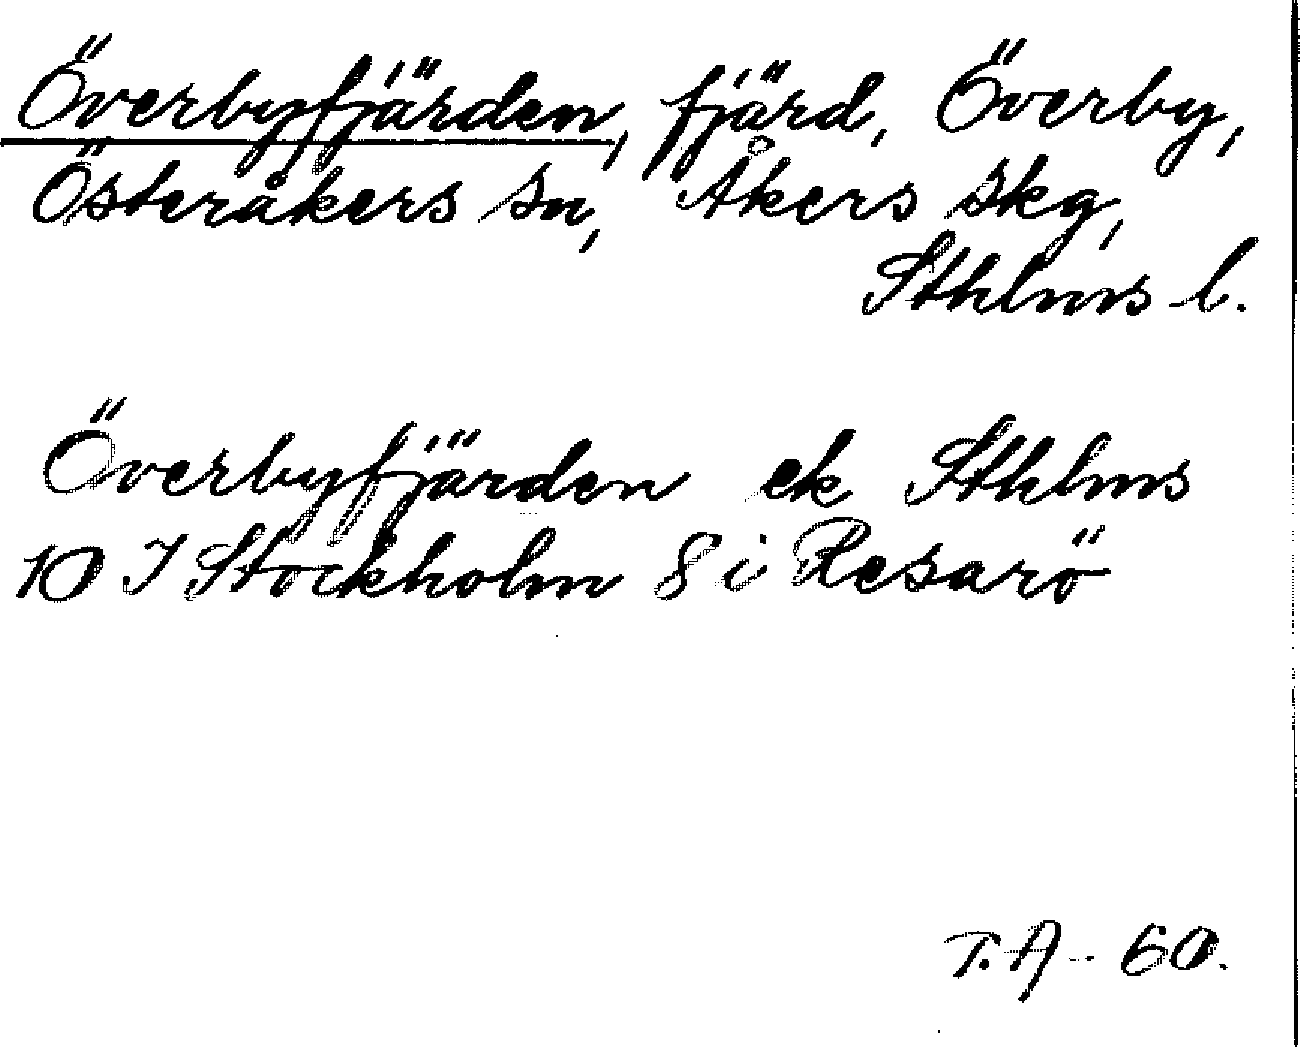 Överbyfjärden, fjärd, Överby,
Österåkers sn, Åkers skg,
Sthlms l.
Överbyfjärden ek Sthlms
10 I Stockholm 8 i Resarö
T.A - 60.